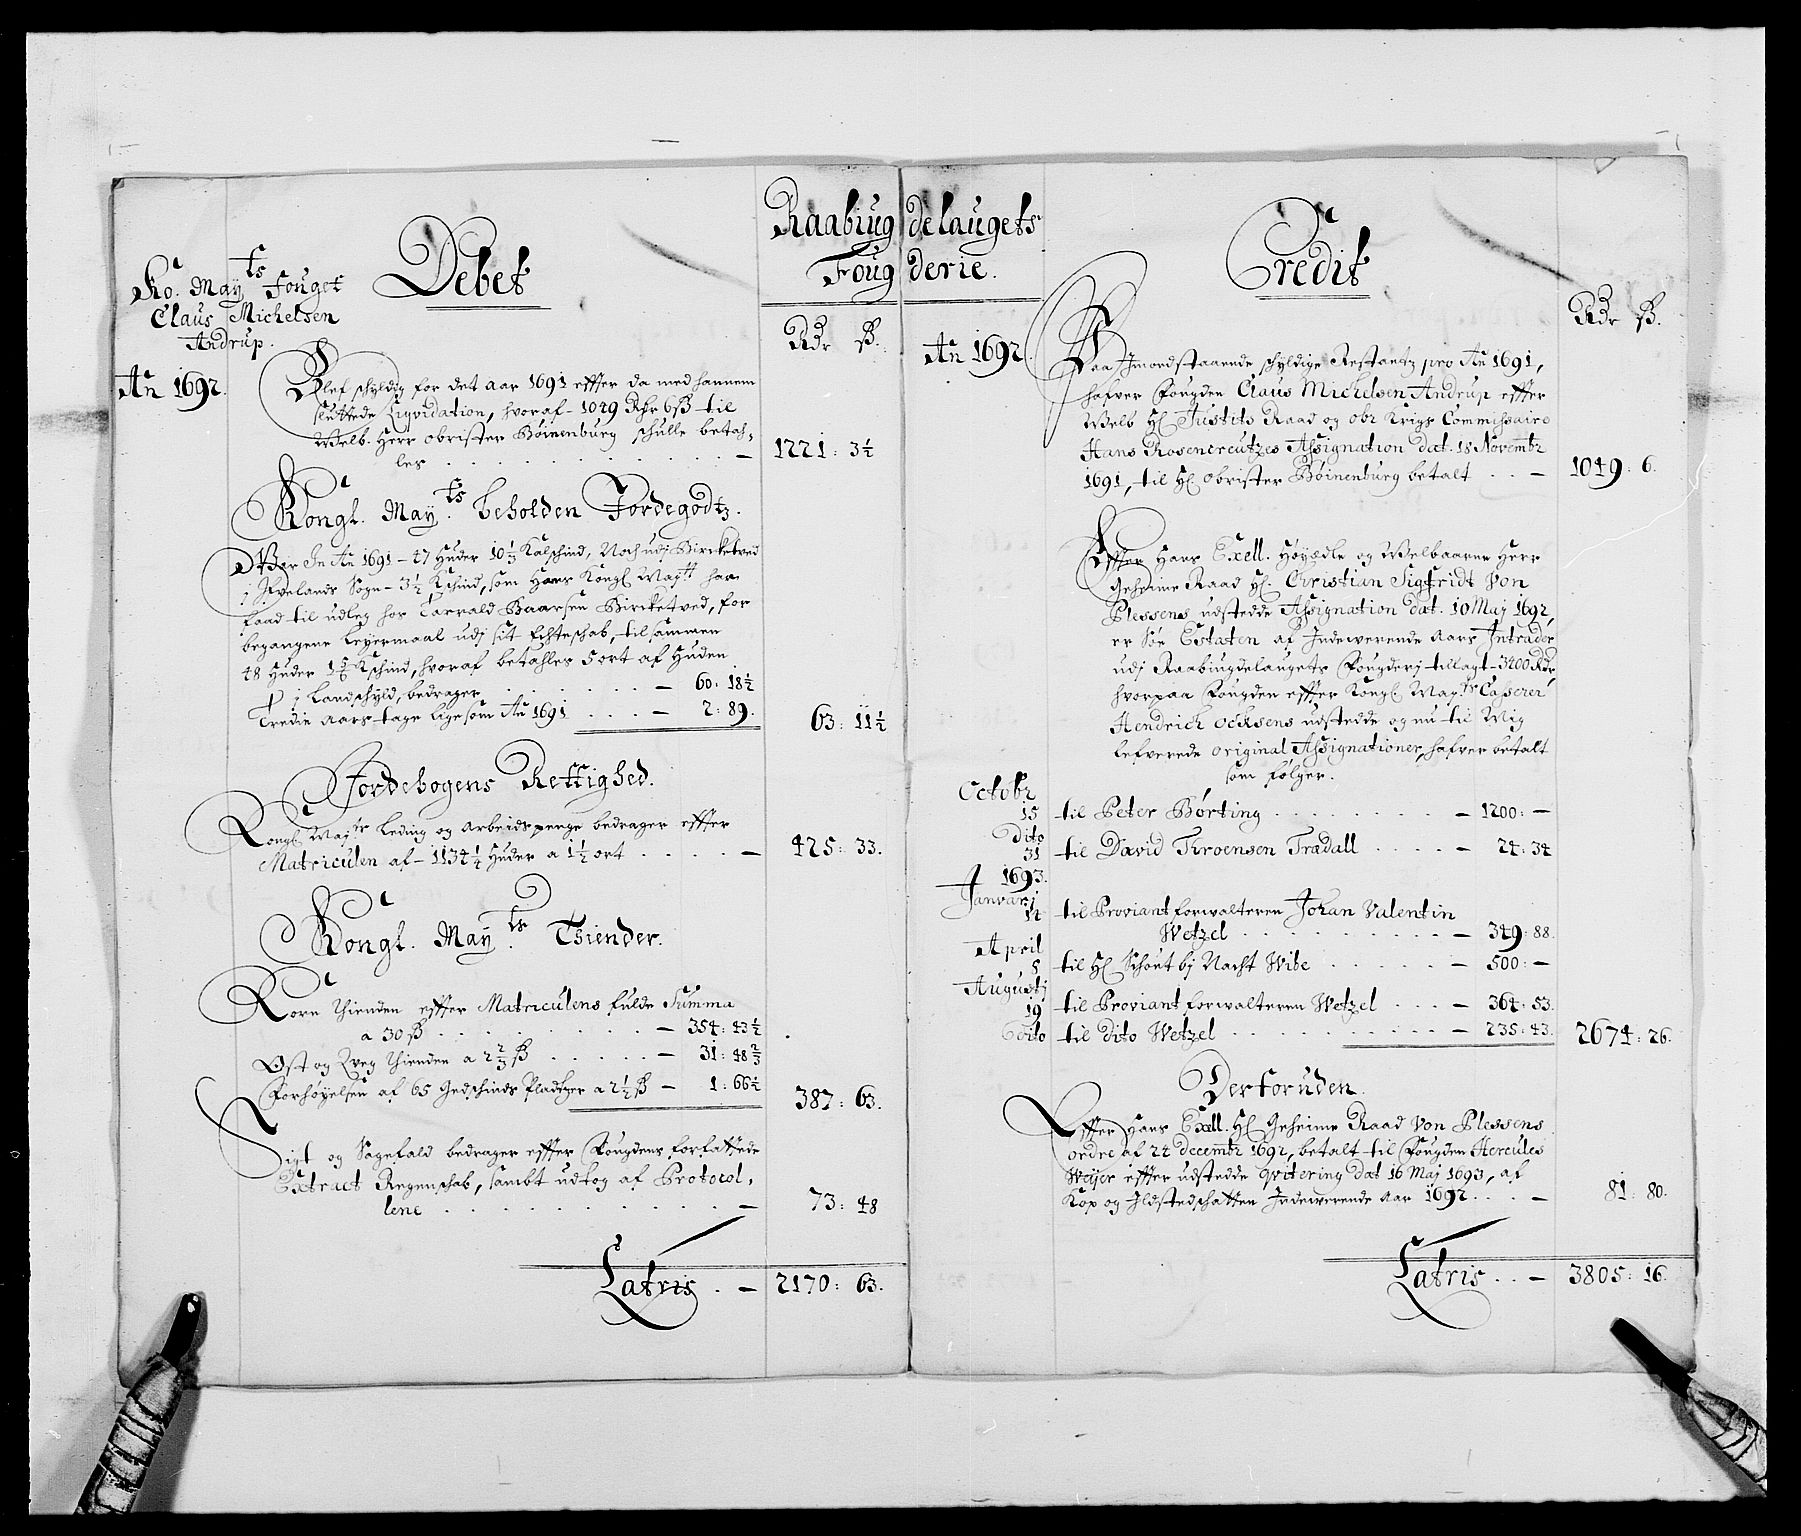 Raabiug delaugets
Foug derie.
Debet
Ko. May ts Fouget
Claus Michelsen
Andrup.
Rdr ß.
An 1692.
Blef schyldig for det aar 1691 effter da med hannem
sluttede Liqvidation, hvoraf 1049 Rdr 6 ß til
Welb. Herr obrister Böinenburg schulle betah-
les . . . — 1221: 3½
Kongl. May ts beholden Jordegodtz.
War In An 1691 - 47 Huder 10⅓ Kalschind, Noch udj Bircketved
j Ifvelands Sogn - 3½ Kschind, som Hans Kongl Maytt haar
faad til udleg hos Tarrald Baarsen Bircketved, for
begangene Leyermaal udj sit Echteschab, tilsammen
48 Huder Kschind, hvoraf betahles 5 ort af Huden
j Landschyld, bedrager . . . — 60: 18½
Tredie Aars tage ligesom An 1691 . . . — 2: 89.
63: 11½
Jordebogens Rettighed.
Kongl Maytz Leding og Arbeidspenge bedrager effter
Matriculen af - 1134¼ Huder a 1½ ort . . . — 425: 33.
Kongl. May ts Tiender.
Korn thienden effter Matriculens fulde Summa
a 30 ß . . . — 354: 43½
Ost og Qveg thienden a 2⅔ ß . . . — 31: 48⅔
Forhöyelsen af 65 Gedschinds Pladtzer a 2½ ß — 1: 66½
387: 63.
Sigt og Sagefald bedrager effter Fougdens forfattede
Extract Regenschab, sambt udtog af Protocol-
lene . . . — 73: 48
Latris . — 2170: 63.
Credit
Rdr ß.
An 1692.
Paa Imodstaaende schyldige Restantz pro An 1691,
hafver Fougden Claus Michelsen Andrup effter
Welb Hl Justits Raad og obr Krigs Commissaire
Hans Rosencreutzes Assignation dat. 18 Novembr
1691, til Hl obrister Böinenburg betalt . . — 1049: 6.
Effter Hans Exell. Höyædle og Welbaarne Herr
Geheime Raad Hl. Christian Sigfridt Von
Plessens udstedde Assignation dat. 10 Maj 1692,
er Söe Estaten af Indeværende Aars Intrader
udj Raabiugdelaugets Fougderj tillagt - 3400 Rdr
hvorpaa Fougden effter Kongl Maytz Casserer
Hendrich Ocksens udstedde og nu til Mig
lefverede original Assignationer, hafver betalt
som fölger.
Octobr
15 til Peter Börting . . . — 1200: —
Dito
31 til David Throensen Trædall . . . — 24: 34
1693.
Januarj
12 til Proviantforwalteren Johan Valentin
Wetzel . . . — 349: 88.
April
5 til Hl Schoutbj Nacht Wibe . . . — 500: —
Augustj
19 til Proviantforwalteren Wetzel . . . — 364: 53.
Dito til Dito Wetzel . . . — 235: 43. 2674: 26.
Desforuden.
Effter Hans Exell. Hl Geheime Raad Von Plessens
ordre af 24 decembr 1692, betalt til Fougden Hercules
Weyer effter udstedde Qvitering dat 16 Maj 1693, af
Kop og Ildstedschatten Indeværende Aar 1692 . . — 81: 80.
Latris . . — 3805: 16.